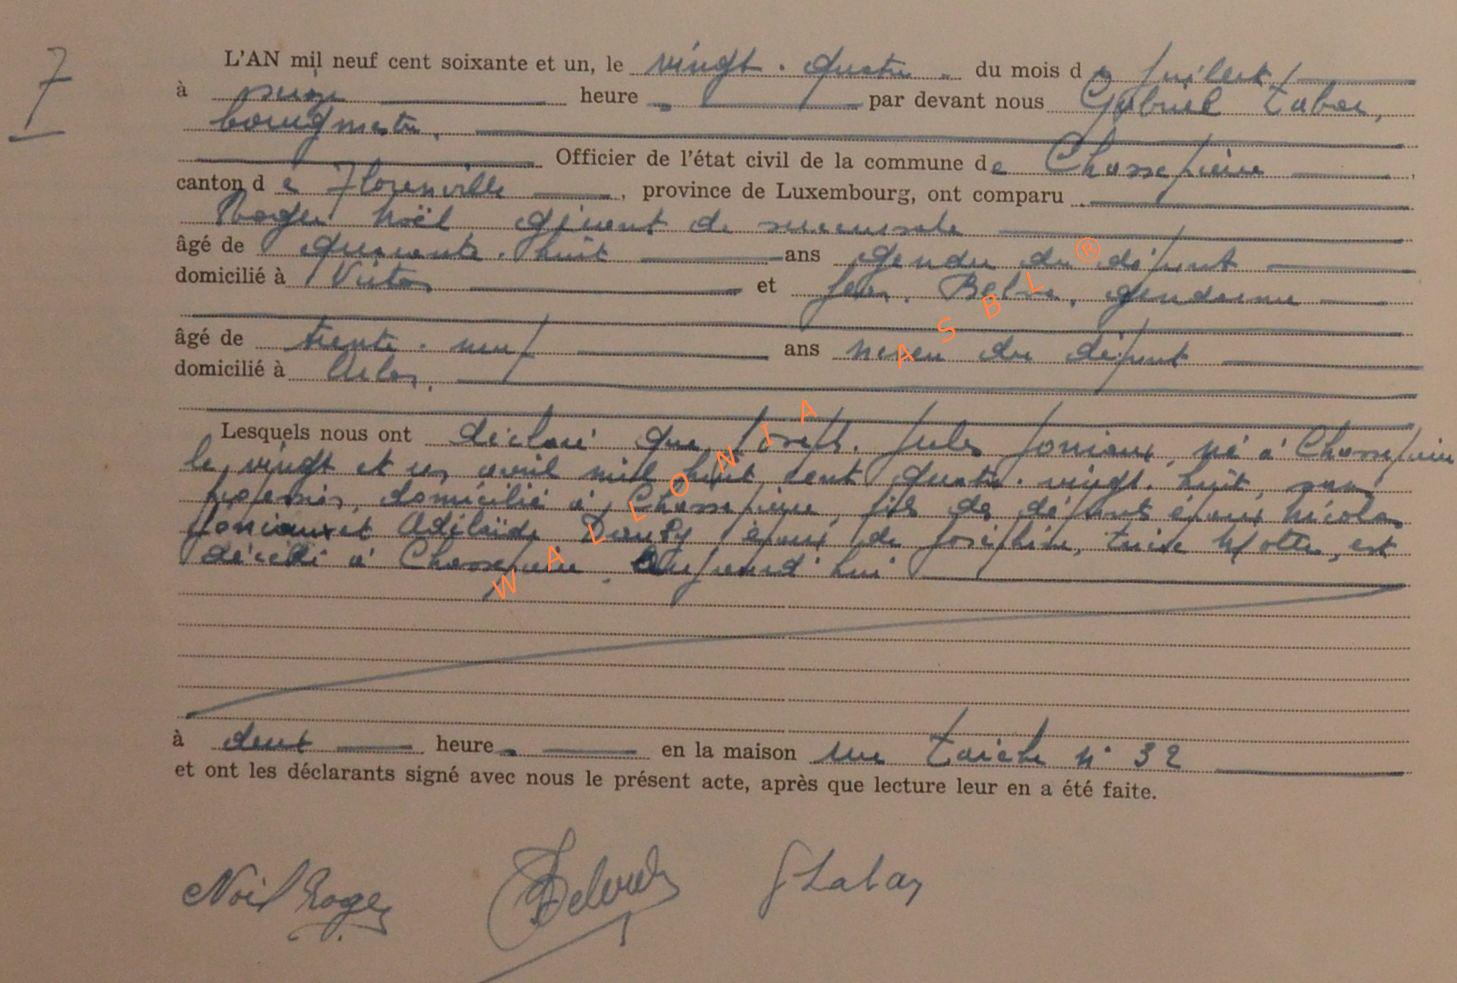 7
L'AN mil neuf cent soixante et un, le vingt-quatre du mois de juillet
à onze heures par devant nous Gabriel Labar,
bourgmestre,
Officier de l'état civil de la commune de Chassepierre
canton de Florenville, province de Luxembourg, ont comparu
Roger Noël gérant de succursale
âgé de quarante-huit ans gendre du défunt
domicilié à Virton et Jean, gendarme
âgé de trente-neuf ans neveu du défunt
domicilié à Arlon,
Lesquels nous ont déclaré que Joseph Jules Joniaux, né à Chassepierre
le vingt et un avril mil huit cent quatre-vingt-huit, sans
profession, domicilié à Chassepierre, fils des défunts époux Nicolas
Joniaux et Adélaïde époux de Joséphine, est
décédé à Chassepierre, aujourd'hui
à deux heures en la maison rue n° 32
et ont les déclarants signé avec nous le présent acte, après que lecture leur en a été faite.
Noël Roger GLabar
WALLONIA ASBL ®